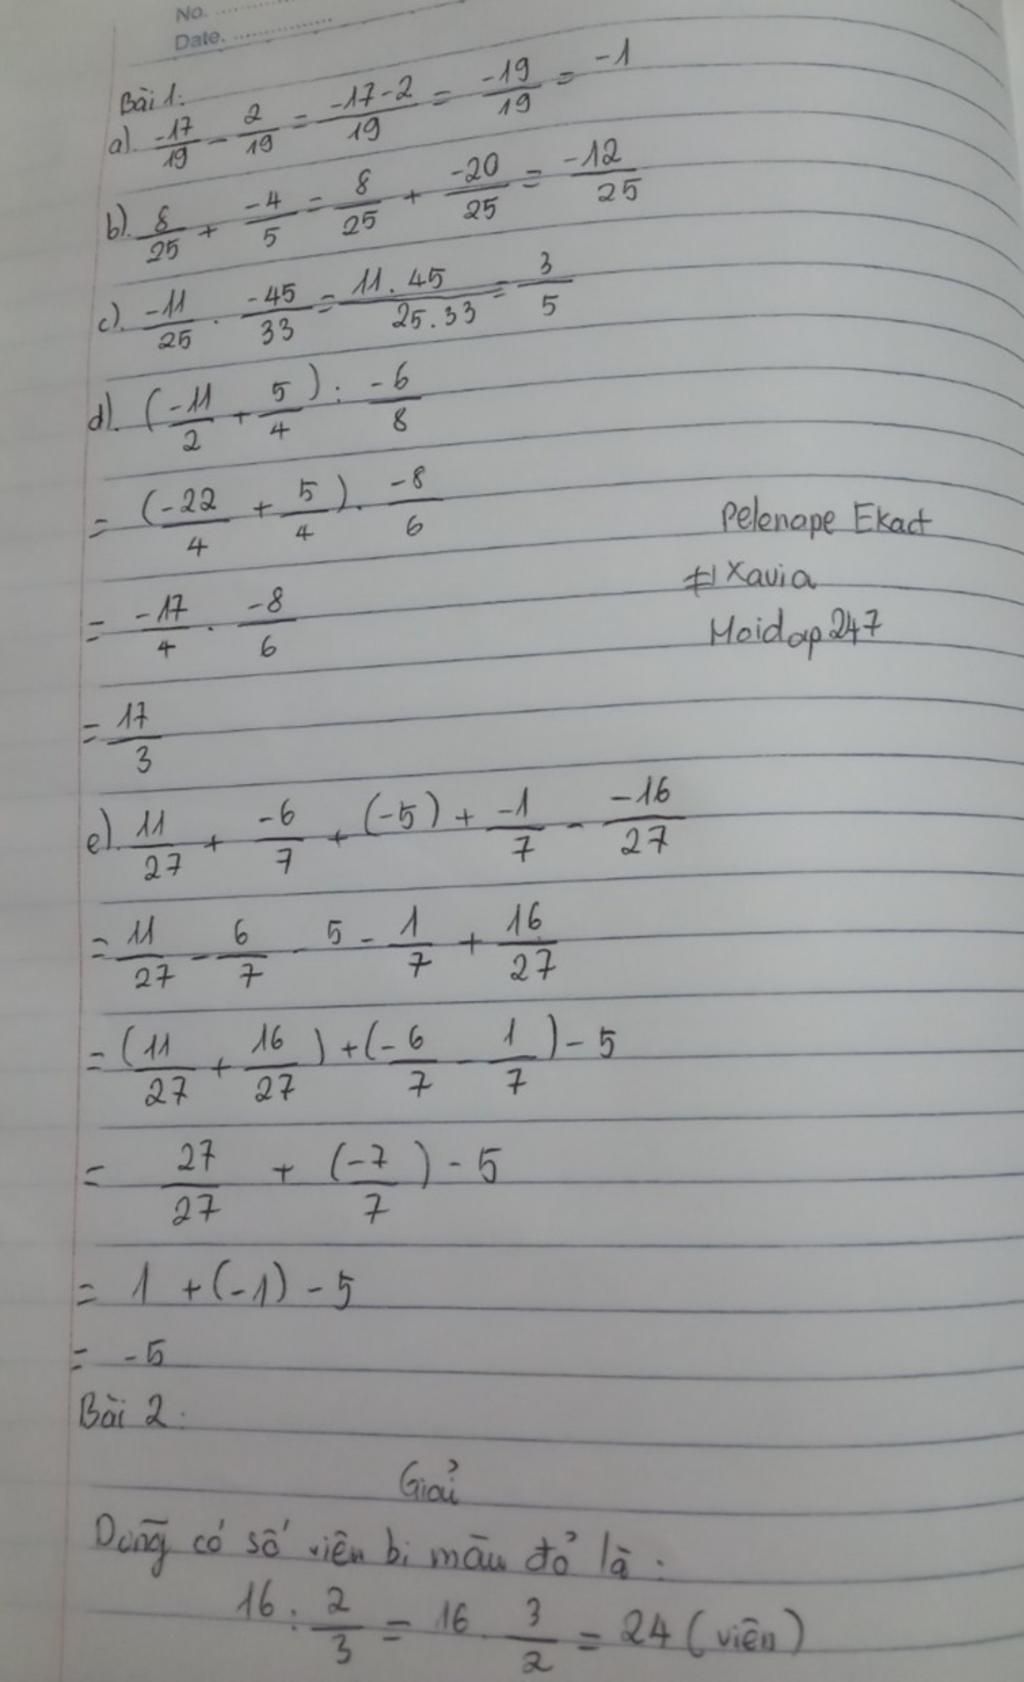 No. ................
Date. ................
Bài 1:
a). -17/19 - 2/19 = -17-2/19 = -19/19 = -1
b). 8/25 + -4/5 = 8/25 + -20/25 = -12/25
c). -11/25 . -45/33 = 11.45/25.33 = 3/5
d). (-11/2 + 5/4) : -6/8
= (-22/4 + 5/4) . -8/6
Pelenape Ekact
= -17/4 . -8/6
#Xavia
Hoidap247
= 17/3
e). 11/27 + -6/7 + (-5) + -1/7 - -16/27
= 11/27 - 6/7 - 5 - 1/7 + 16/27
= (11/27 + 16/27) + (-6/7 - 1/7) - 5
= 27/27 + (-7/7) - 5
= 1 + (-1) - 5
= -5
Bài 2:
Giải
Dũng có số viên bi màu đỏ là :
16 : 2/3 = 16 . 3/2 = 24 (viên)